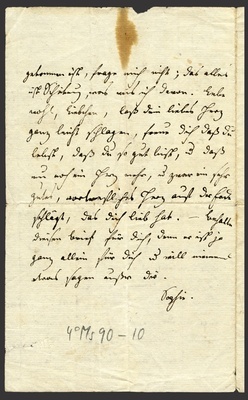 gekommen ist, frage mich nicht; das alles
ist Schickung, was weiß ich davon. Lebe
wohl, Liebchen, laß dein liebes Herz
ganz leicht schlagen, freue dich daß du
lebst, daß du so gut bist, u daß
nur noch ein Herz mehr, u zwar ein sehr
gutes, vortreffliches Herz auf der Erde
schlägt, das dich lieb hat. — Behalte
diesen Brief für dich, denn er ist ja
ganz allein für dich u ich will niemand
etwas sagen außer dir.
Sophie.
4° Ms 90-10